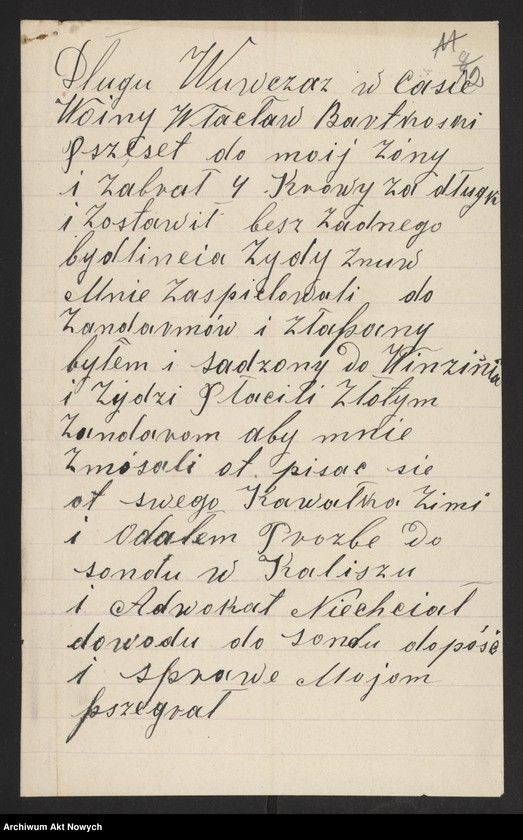 11
22
Długu Wuwczaz w Casie
Woiny Wtacław Bartkoski
pszeset do moij Zóny
i Zabrał 4 Krowy za długk
i Zostawił besz Zadnego
bydlincia Zydy Znuw
Mnie Zaspielowali do
Zandarmów i Złapany
byłem i sadzony do Winzinia
i Zydzi Płacili Złotym
Zandarom aby mnie
Zmósali ot pisac sie
ot swego Kawałka Zimi
i Odałem Prozbe Do
sondu w Kaliszu
i Adwokat Niechciał
dowodu do sondu dopóść
i sprawe Mojom
pszegrał
Archiwum Akt Nowych